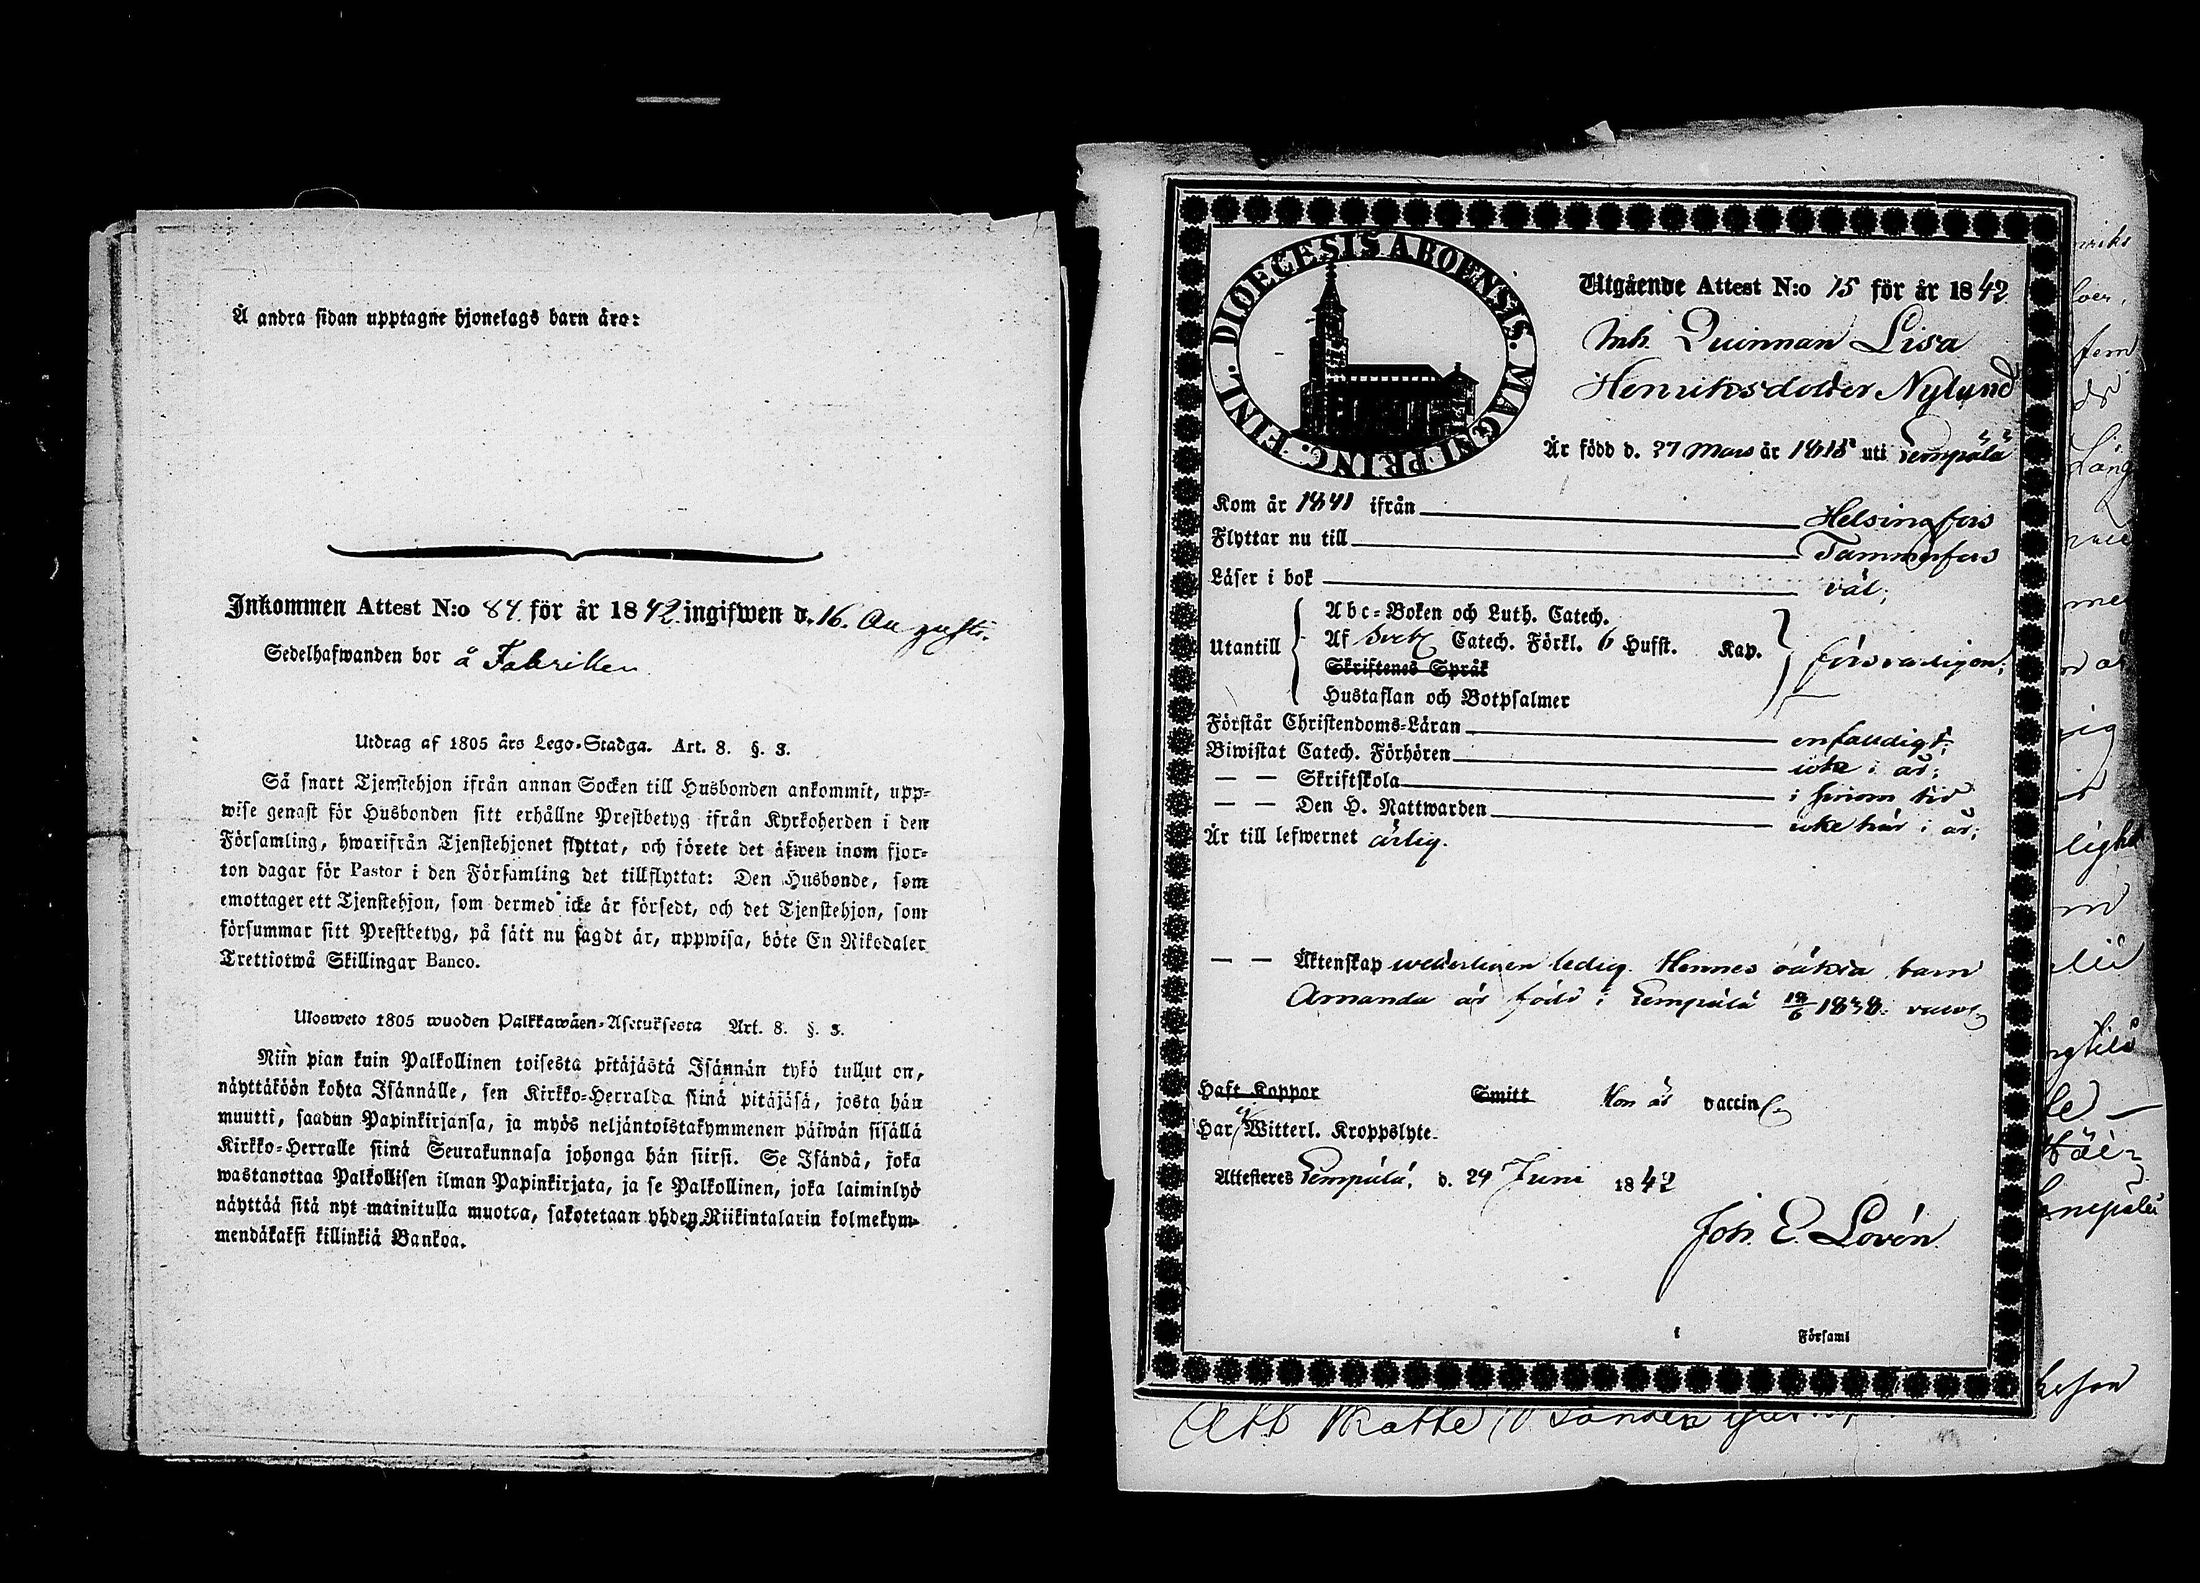 Å andra sidan upptagne hjonelags barn äro:
Inkommen Attest N:o 84. för år 1842. ingifwen d. 16. Augusti.
Sedelhafwanden bor å Fabriken
Utdrag af 1805 års Lego-Stadga. Art. 8. §. 3.
Så snart Tjenstehjon ifrån annan Socken till Husbonden ankommit, upp-
wise genast för Husbonden sitt erhållne Prestbetyg ifrån Kyrkoherden i den
Församling, hwarifrån Tjenstehjonet flyttat, och förete det äfwen inom fjor-
ton dagar för Pastor i den Församling det tillflyttat: Den Husbonde, som
emottager ett Tjenstehjon, som dermed icke är försedt, och det Tjenstehjon, som
försummar sitt Prestbetyg, på sätt nu sagdt är, uppwisa, böte En Riksdaler
Trettiotwå Skillingar Banco.
Ulosweto 1805 wuoden Palkkawäen-Asetuksesta Art. 8. §. 3.
Niin pian kuin Palkollinen toisesta pitäjästä Isännän tykö tullut on,
näyttäköön kohta Isännälle, sen Kirkko-Herralda siinä pitäjäsä, josta hän
muutti, saadun Papinkirjansa, ja myös neljäntoistakymmenen päiwän sisällä
Kirkko-Herralle siinä Seurakunnasa johonga hän siirsi. Se Isändä, joka
wastanottaa Palkollisen ilman Papinkirjata, ja se Palkollinen, joka laiminlyö
näyttää sitä nyt mainitulla muotoa, sakotetaan yhden Riikintalarin kolmekym-
mendäkaksi killinkiä Bankoa.
DIOECESIS ABOENSIS. MAGNI PRINC. FINL.
Utgående Attest N:o 15 för år 1842
Inh. Quinnan Lisa
Henriksdotter Nylund
Är född d. 27 Mars år 1815 uti Lempälä
Kom år 1841 ifrån Helsingfors
Flyttar nu till Tammerfors
Läser i bok väl;
Abc-Boken och Luth. Catech.
Utantill Af Catech. Förkl. 6 Hufst. Kap. försvarligen;
Skriftenes Språk
Hustaflan och Botpsalmer
Förstår Christendoms-Läran enfaldigt;
Biwistat Catech. Förhören icke i år;
— — Skriftskola i sinom tid
— — Den H. Nattwarden icke här i år;
Är till lefwernet ärlig.
— — Äktenskap wetterligen ledig. Hennes oäkta barn
Amanda är född i Lempälä 18/6 1838.
Haft Koppor Smitt Hon är vaccin
Har ej Witterl. Kroppslyte.
Attesteres Lempälä, d. 24 Juni 1842
Joh. E. Lovén.
i Församl